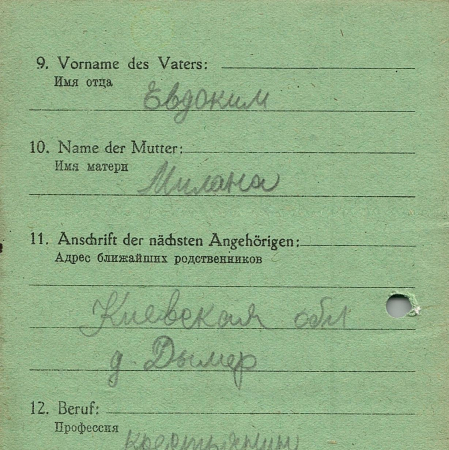 9. Vorname des Vaters:
Имя отца
Евдоким
10. Name der Mutter:
Имя матери
Милана
11. Anschrift der nächsten Angehörigen:
Адрес ближайших родственников
Киевская обл
д. Дымер
12. Beruf:
Профессия
крестьянин